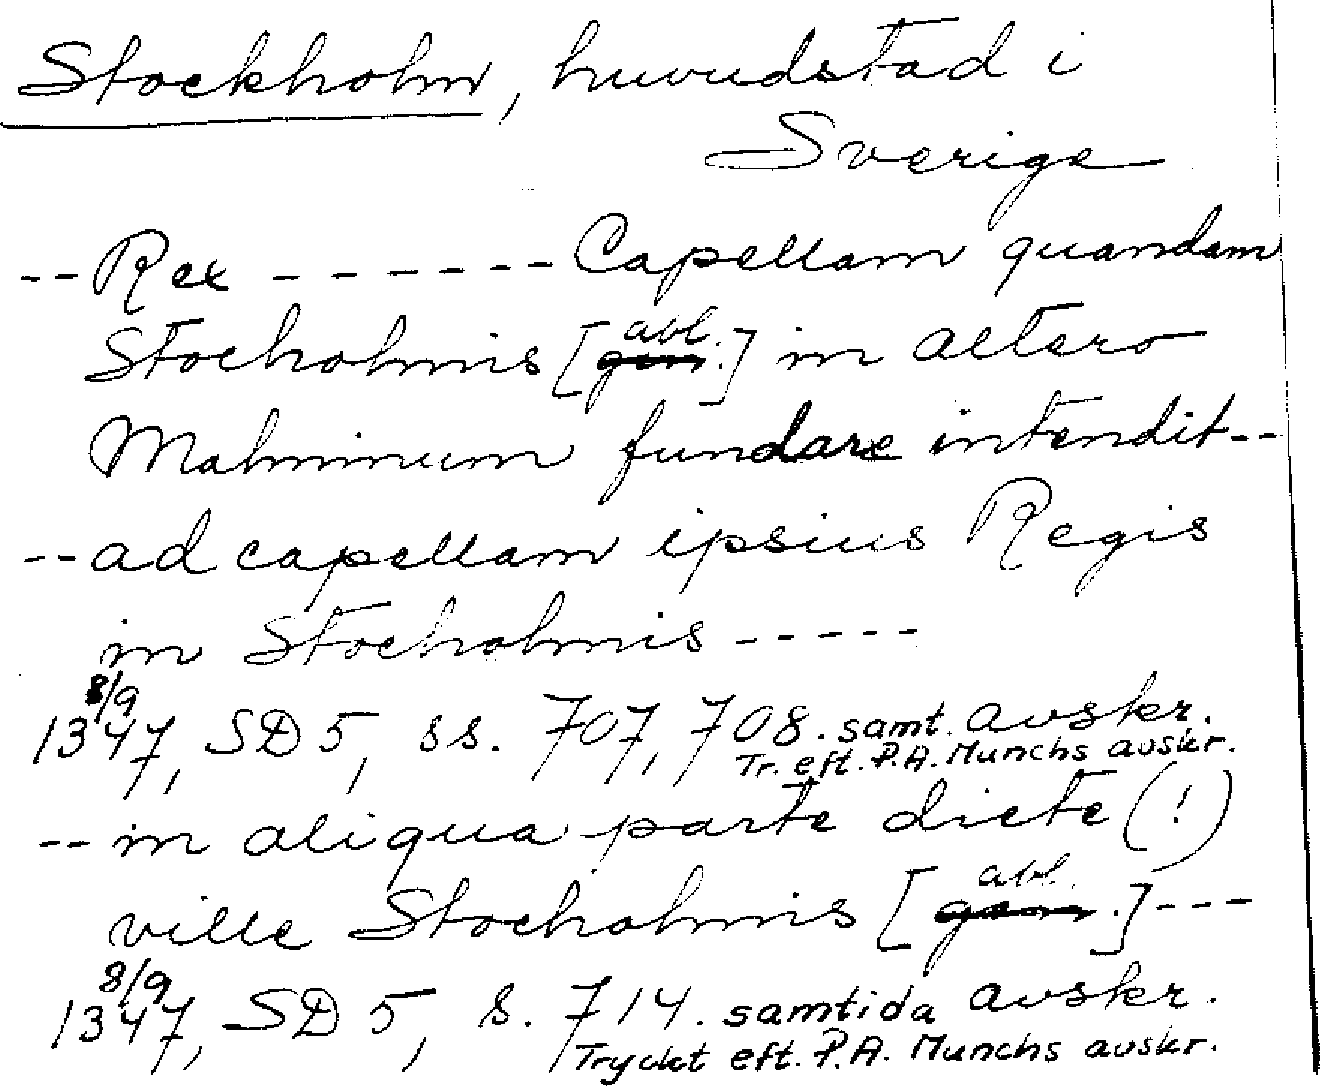 Stockholm, huvudstad i
Sverige
-- Rex ------ Capellam quandam
Stocholmis [abl.] in altero
Malminum fundare intendit--
-- ad capellam ipsius Regis
in Stocholmis -----
8/9
1347, SD 5, ss. 707, 708. samt. avskr.
Tr. eft. P.A. Munchs avskr.
-- in aliqua parte dicte (!)
ville Stocholmis [abl.] ---
8/9
1347, SD 5, s. 714. samtida avskr.
Tryckt eft. P.A. Munchs avskr.